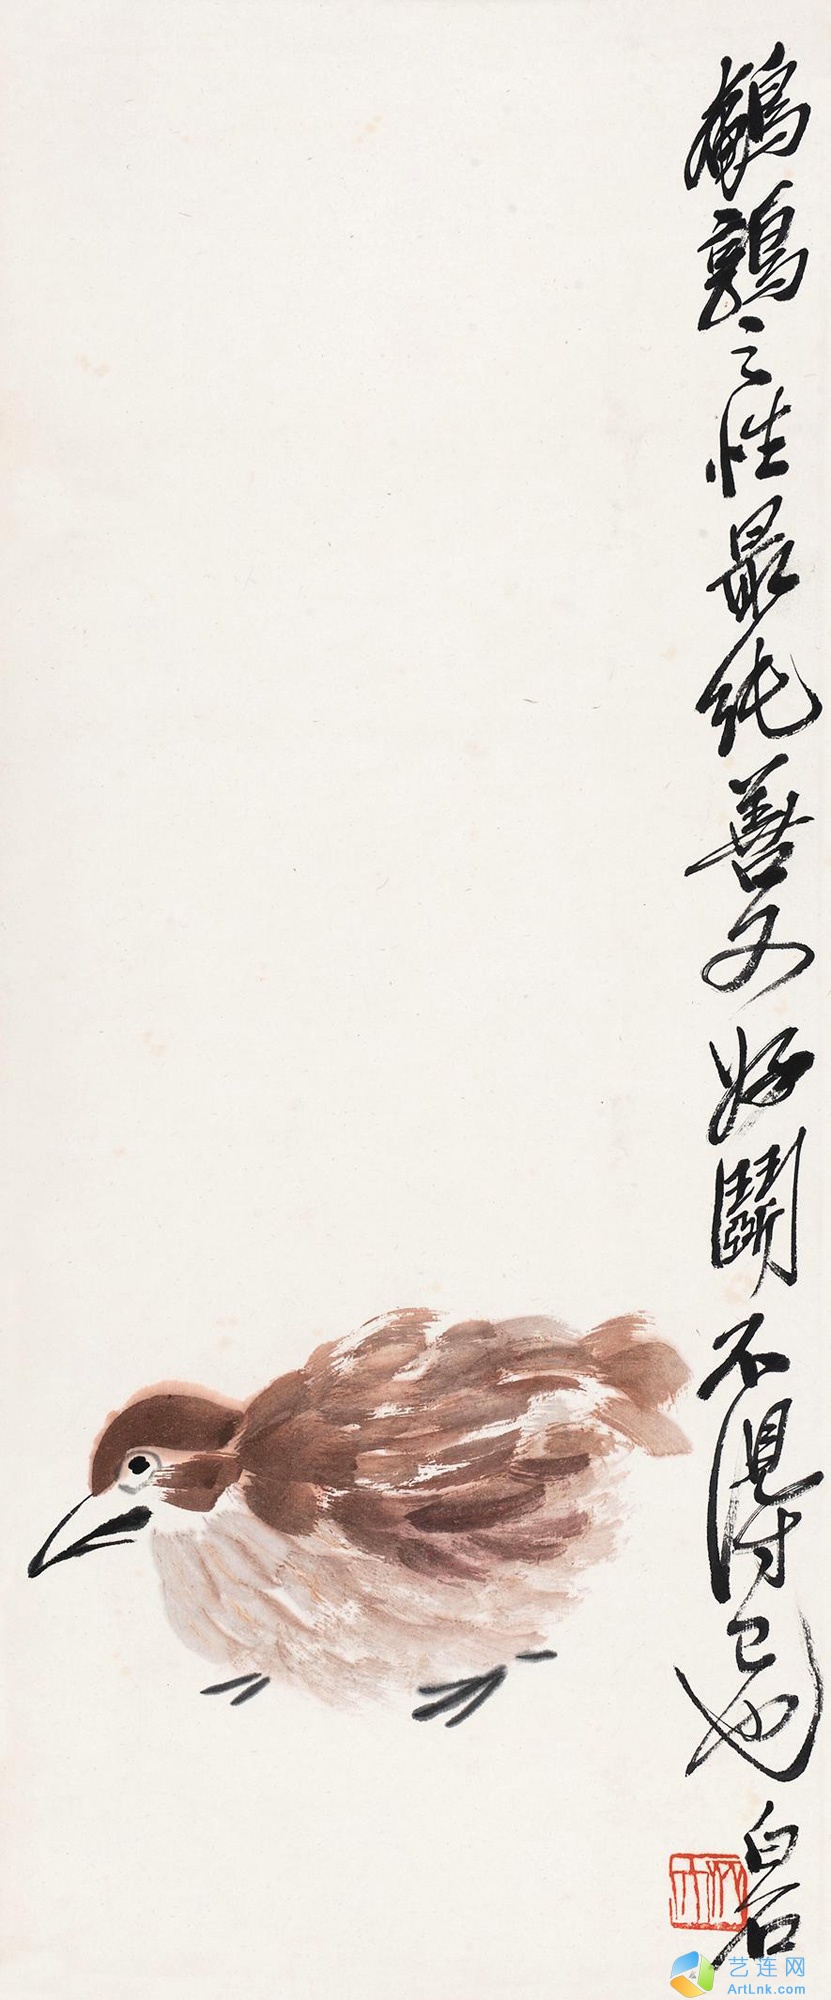 鵪鶉之性最純善又好鬭不得已也白石
木人
艺连网
ArtLnk.com